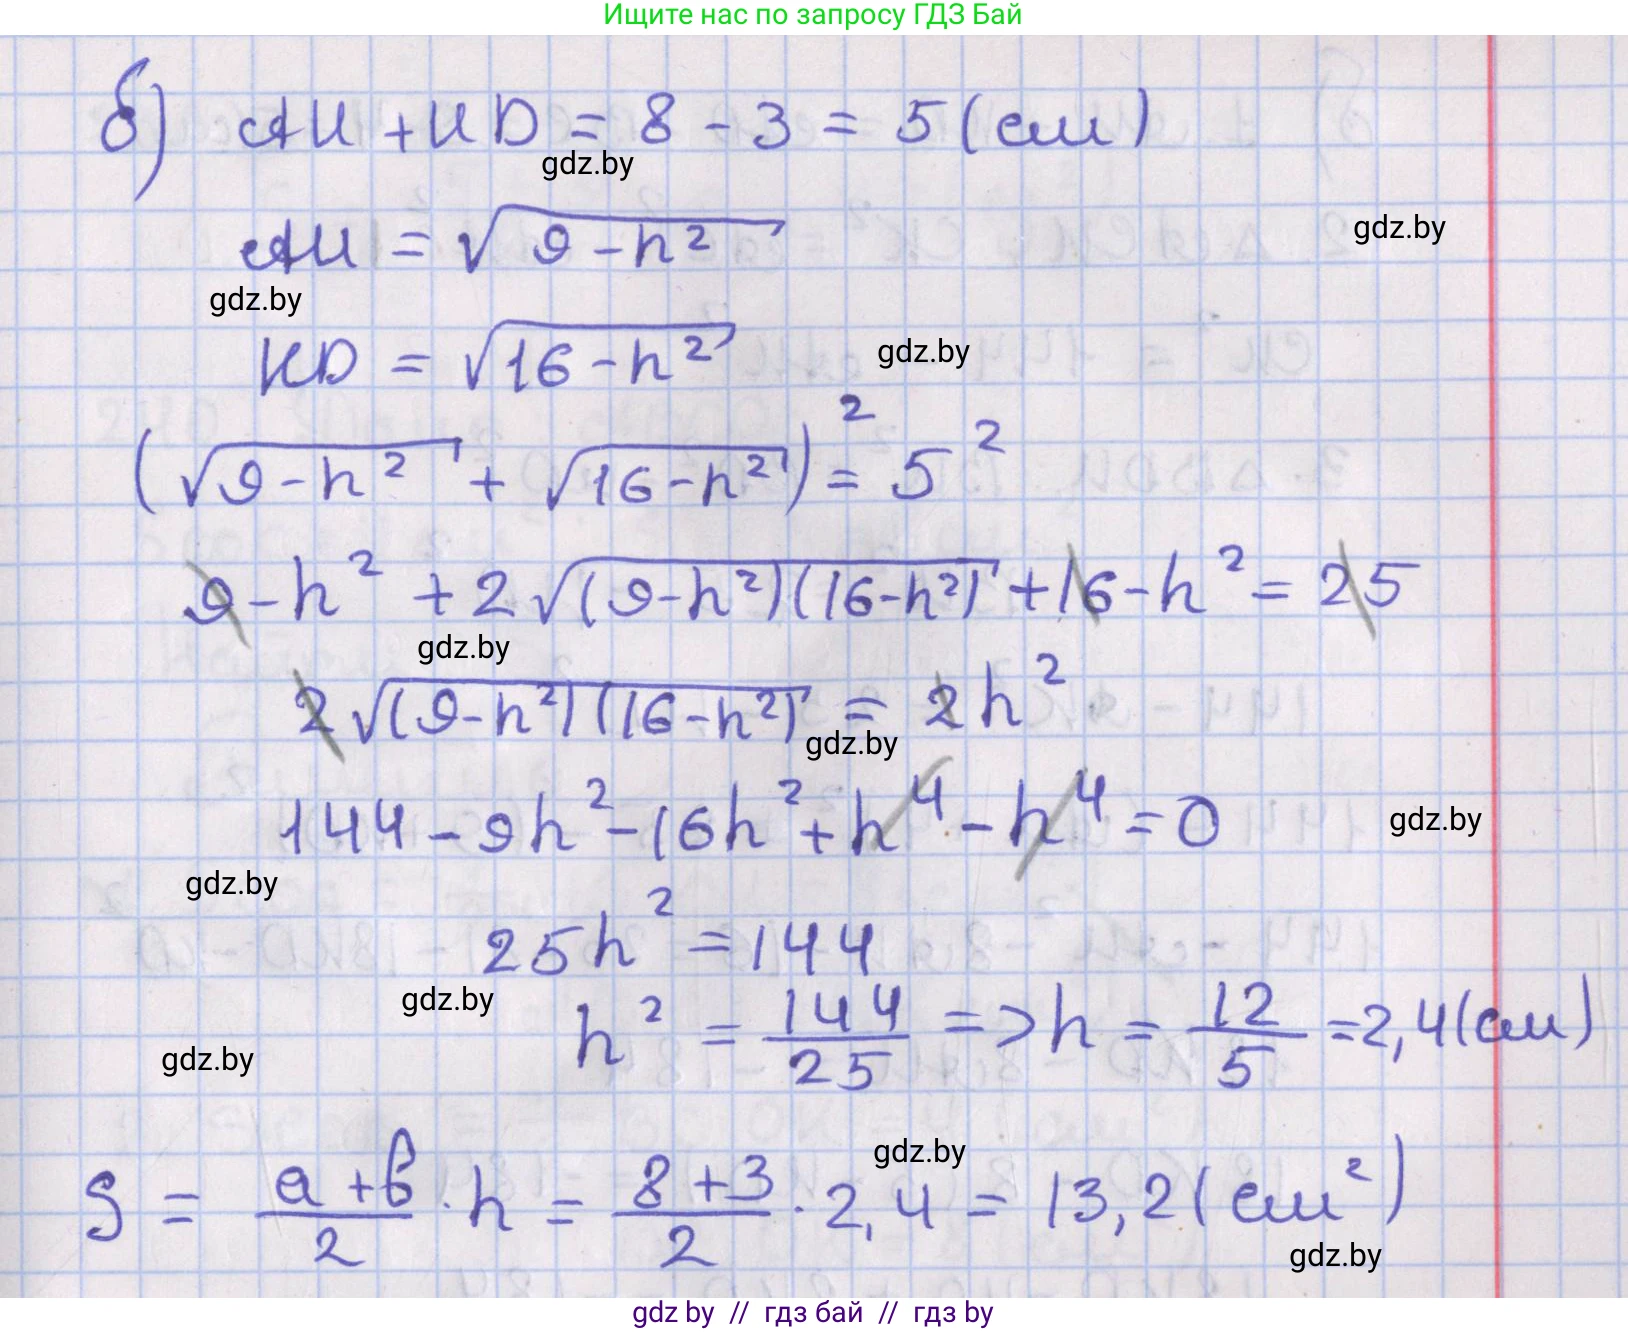 Ищите нас по запросу ГДЗ Бай
б) AH + HD = 8 - 3 = 5 (см)
gdz.by
AH = √(9 - h²)
gdz.by
gdz.by
KD = √(16 - h²)
gdz.by
(√(9 - h²) + √(16 - h²))² = 5²
9 - h² + 2√((9 - h²)(16 - h²)) + 16 - h² = 25
gdz.by
2√((9 - h²)(16 - h²)) = 2h²
gdz.by
144 - 9h² - 16h² + h⁴ - h⁴ = 0
gdz.by
gdz.by
25h² = 144
gdz.by
h² = 144/25 => h = 12/5 = 2,4 (см)
gdz.by
gdz.by
S = (a + b)/2 · h = (8 + 3)/2 · 2,4 = 13,2 (см²)
gdz.by
gdz by // гдз бай // гдз by